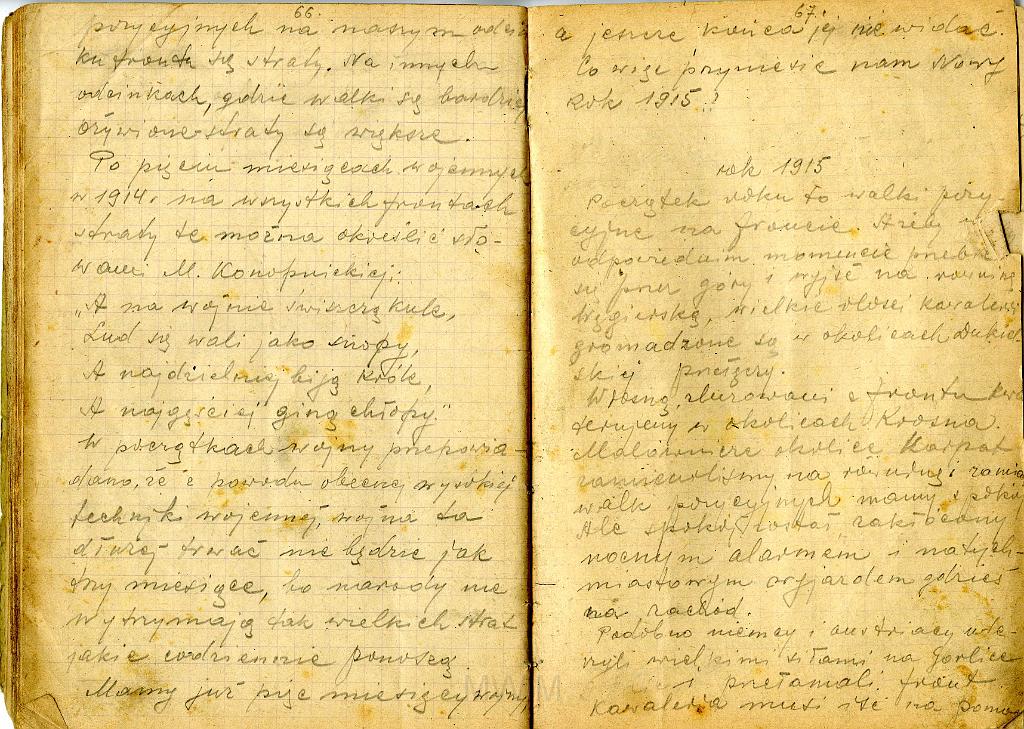 66.
pozycyjnych na naszym odcin
ku frontu są straty. Na innych
odcinkach, gdzie walki są bardziej
ożywione straty są większe.
Po pięciu miesiącach wojennych
w 1914 r. na wszystkich frontach
straty te można określić sło-
wami M. Konopnickiej:
„A na wojnie świszczą kule,
Lud się wali jako snopy,
A najdzielniej biją król,
A najgęściej giną chłopy."
W początkach wojny przepowia-
dano, że z powodu obecnej wysokiej
techniki wojennej, wojna ta
dłużej trwać nie będzie jak
trzy miesiące, bo narody nie
wytrzymają tak wielkich strat
jakie codziennie ponoszą.
Mamy już pięć miesięcy wojny,
67.
a jeszcze końca jej nie widać.
Co więc przyniesie nam Nowy
Rok 1915?
rok 1915
Początek roku to walki pozy-
cyjne na froncie. Ażeby w
odpowiednim momencie przebić
się przez góry i wyjść na równinę
Węgierską, wielkie ilości kawalerii
gromadzone są w okolicach Dukiel-
skiej przełęczy.
Wiosną, zluzowani z frontu kwa
terujemy w okolicach Krosna.
Malownicze okolice Karpat
zamieniliśmy na równinę i zamiast
walk pozycyjnych mamy spokój
Ale spokój został zakłócony
nocnym alarmem i natych-
miastowym wyjazdem gdzieś
na zachód.
Podobno niemcy i austriacy ude-
rzyli wielkimi siłami na Gorlice
i przełamali front
Kawaleria musi iść na pomoc